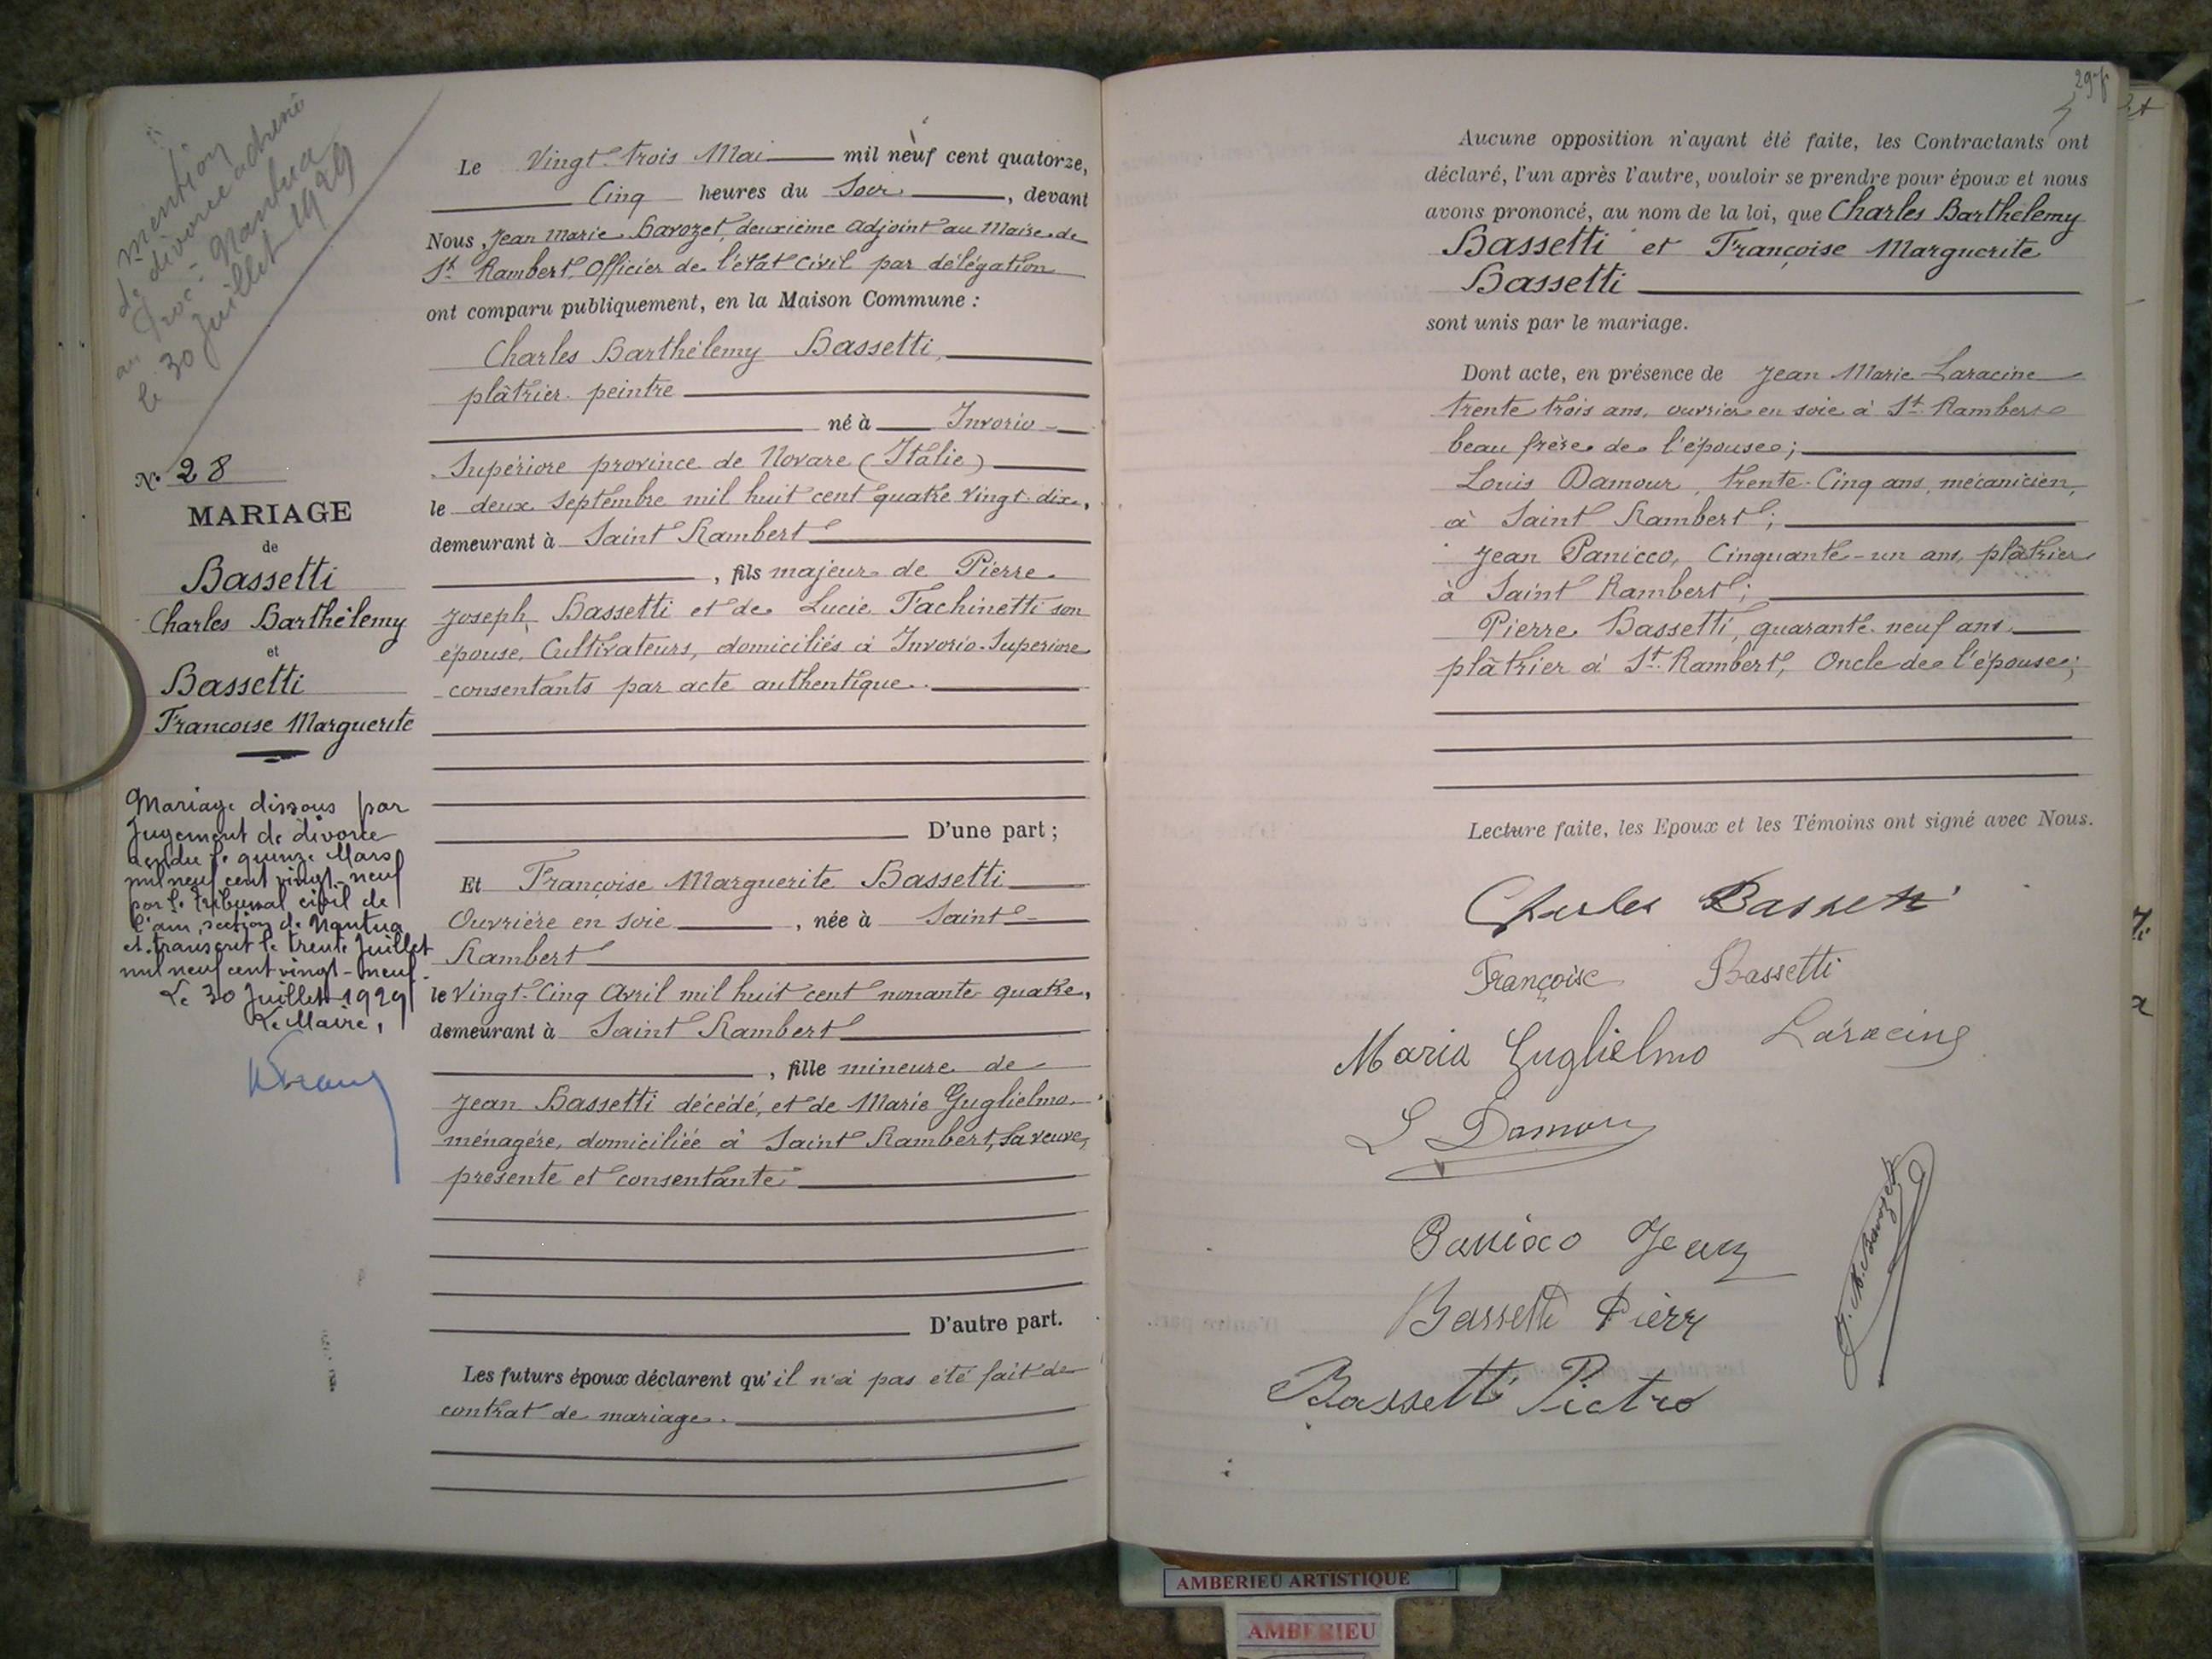 mention
de divorce adressé
au Proc. Nantua
le 30 Juillet 1929
N° 28
MARIAGE
de
Bassetti
Charles Barthélemy
et
Bassetti
Françoise Marguerite
Mariage dissous par
jugement de divorce
rendu le quinze Mars
mil neuf cent vingt-neuf
par le tribunal civil de
l'ain, section de Nantua
et transcrit le trente Juillet
mil neuf cent vingt-neuf.
Le 30 Juillet 1929
Le Maire,
Le Vingt-trois Mai mil neuf cent quatorze,
Cinq heures du Soir, devant
Nous, Jean Marie Barozet, deuxième adjoint au Maire de
St Rambert Officier de l'état civil par délégation
ont comparu publiquement, en la Maison Commune :
Charles Barthélemy Bassetti,
plâtrier-peintre
né à Invorio-
Supériore province de Novare (Italie)
le deux Septembre mil huit cent quatre vingt-dix,
demeurant à Saint Rambert
, fils majeur de Pierre
Joseph Bassetti et de Lucie Tachinetti son
épouse, Cultivateurs, domiciliés à Invorio-Superiore
consentants par acte authentique.
D'une part ;
Et Françoise Marguerite Bassetti
Ouvrière en soie, née à Saint-
Rambert
le Vingt-Cinq Avril mil huit cent nonante quatre,
demeurant à Saint Rambert
, fille mineure de
Jean Bassetti décédé, et de Marie Guglielmo
ménagère, domiciliée à Saint Rambert, sa veuve,
présente et consentante
D'autre part.
Les futurs époux déclarent qu'il n'a pas été fait de
contrat de mariage.
297
Aucune opposition n'ayant été faite, les Contractants ont
déclaré, l'un après l'autre, vouloir se prendre pour époux et nous
avons prononcé, au nom de la loi, que Charles Barthélemy
Bassetti et Françoise Marguerite
Bassetti
sont unis par le mariage.
Dont acte, en présence de Jean Marie Laracine
trente trois ans, ouvrier en soie à St Rambert
beau frère de l'épouse ;
Louis Damour, trente-Cinq ans, mécanicien,
à Saint Rambert ;
Jean Panicco, Cinquante-un ans, plâtrier
à Saint Rambert ;
Pierre Bassetti, quarante-neuf ans
plâtrier à St Rambert, Oncle de l'épouse ;
Lecture faite, les Epoux et les Témoins ont signé avec Nous.
Charles Bassetti
Françoise Bassetti
Maria Guglielmo Laracine
L Damour
Panicco Jean
J. M. Barozet
Bassetti Pierre
Bassetti Pietro
AMBERIEU ARTISTIQUE
AMBERIEU